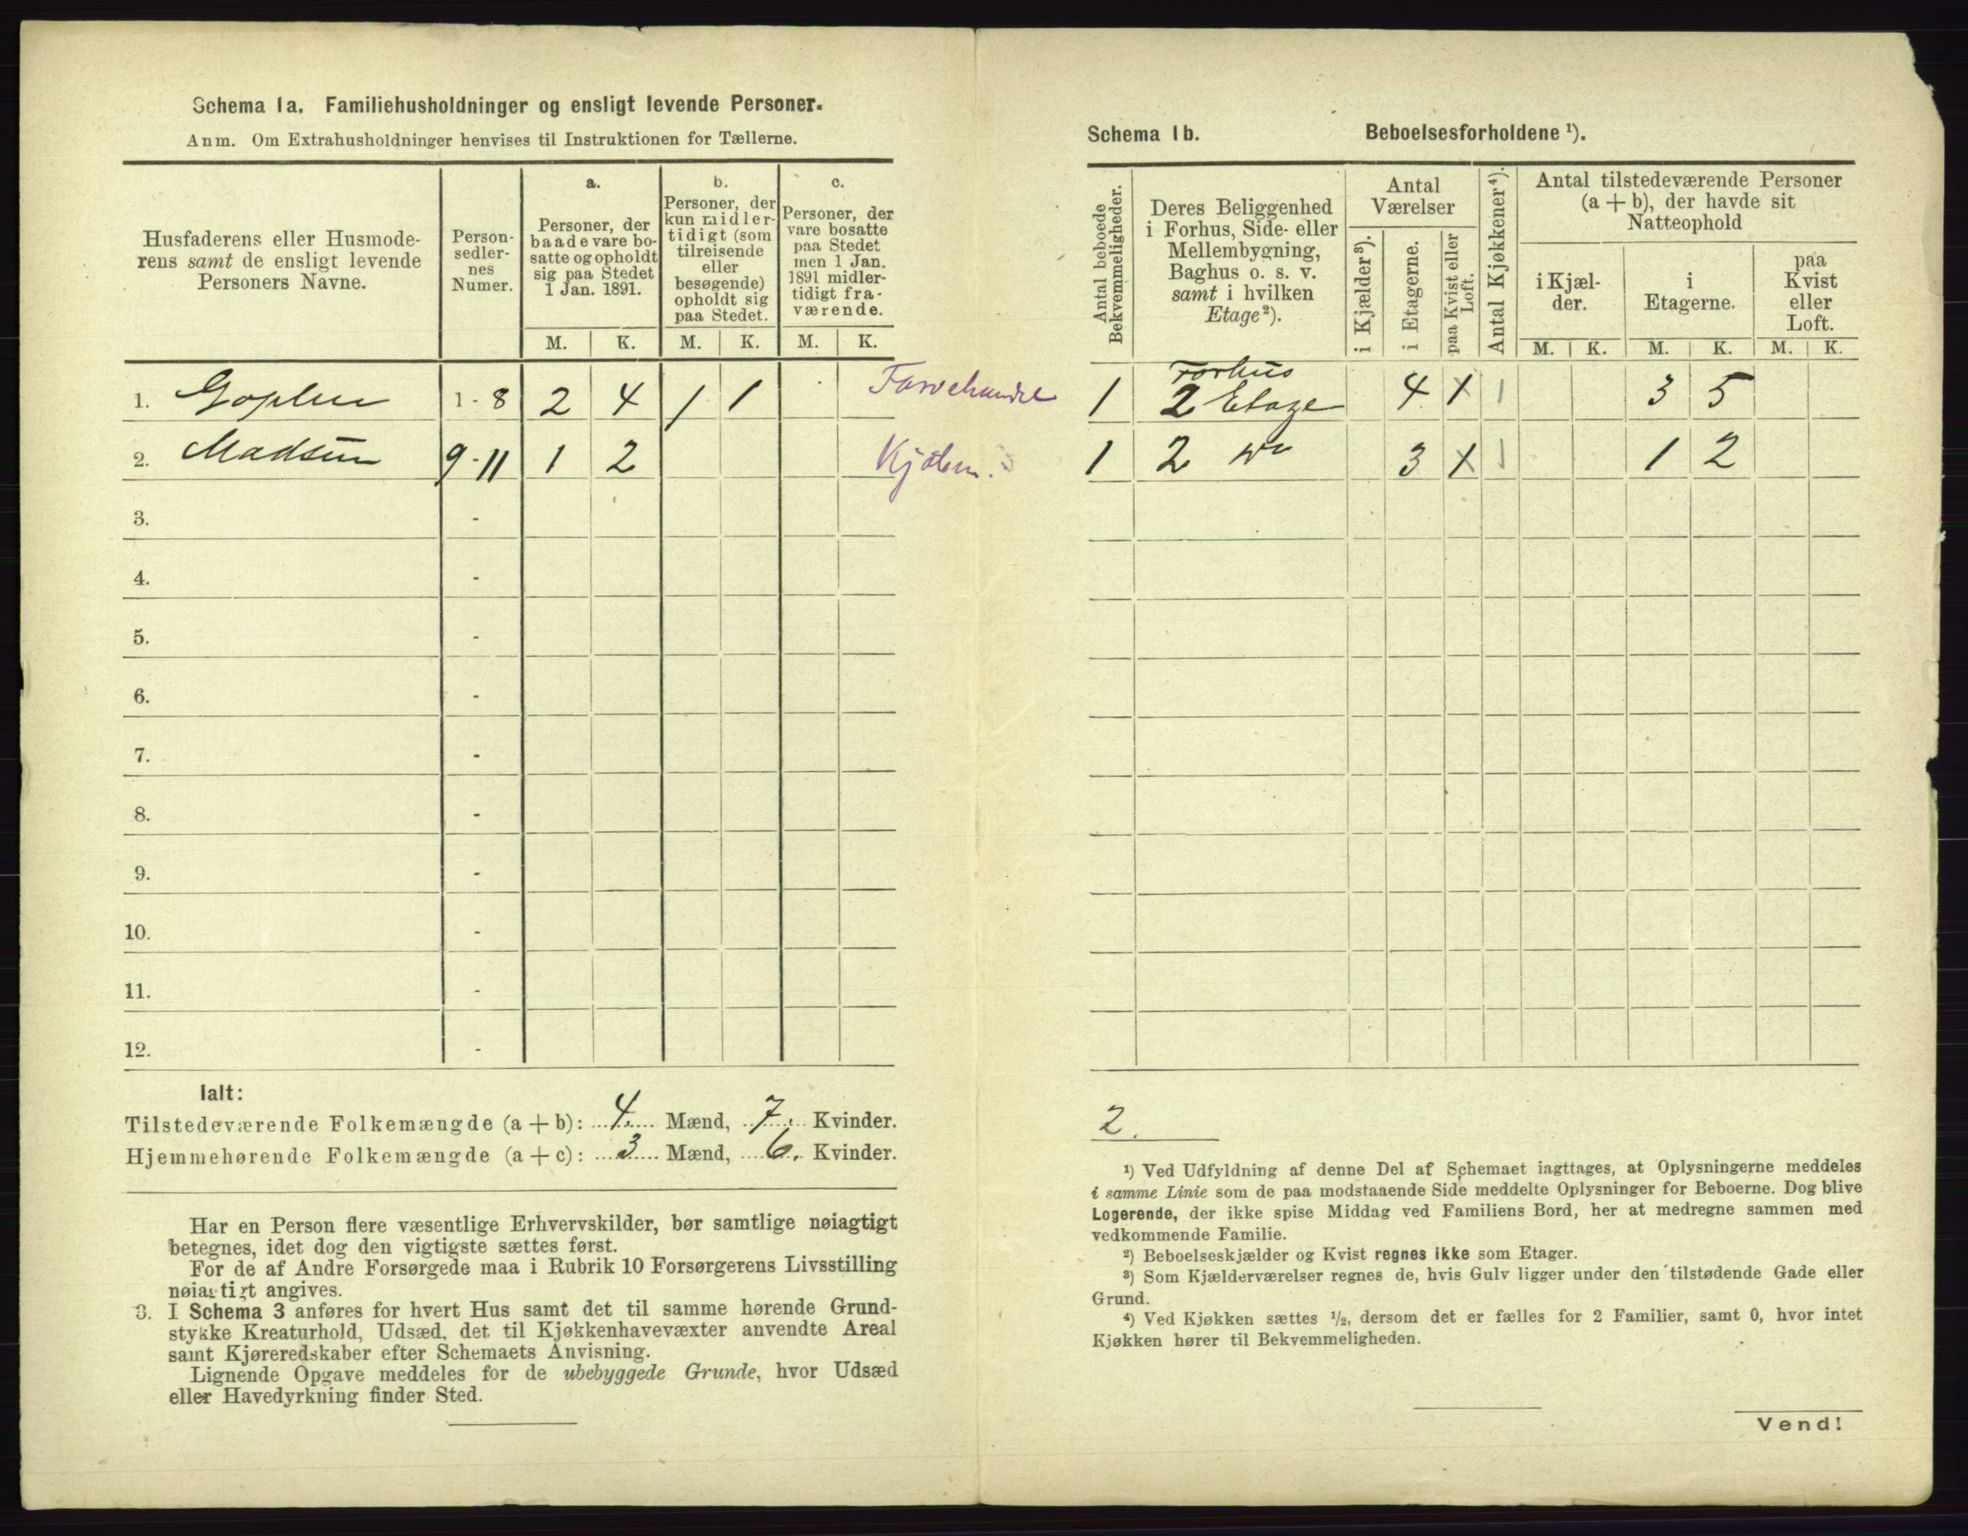 Schema 1a. Familiehusholdninger og ensligt levende Personer.
Anm. Om Extrahusholdninger henvises til Instruktionen for Tællerne.
Husfaderens eller Husmode-
rens samt de ensligt levende
Personers Navne.
Person-
sedler-
nes
Numer.
a.
Personer, der
baade vare bo-
satte og opholdt
sig paa Stedet
1 Jan. 1891.
b.
Personer, der
kun midler-
tidigt (som
tilreisende
eller
besøgende)
opholdt sig
paa Stedet.
c.
Personer, der
vare bosatte
paa Stedet
men 1 Jan.
1891 midler-
tidigt fra-
værende.
M. K. M. K. M. K.
1. Goplen 1-8 2 4 1 1 Farvehandel
2. Madsen 9-11 1 2
3. -
4. -
5. -
6. -
7. -
8. -
9. -
10. -
11. -
12. -
Ialt:
Tilstedeværende Folkemængde (a + b): 4 Mænd, 7. Kvinder.
Hjemmehørende Folkemængde (a + c): 3 Mænd, 6. Kvinder.
Har en Person flere væsentlige Erhvervskilder, bør samtlige nøiagtigt
betegnes, idet dog den vigtigste sættes først.
For de af Andre Forsørgede maa i Rubrik 10 Forsørgerens Livsstilling
nøiagtigt angives.
3. I Schema 3 anføres for hvert Hus samt det til samme hørende Grund-
stykke Kreaturhold, Udsæd, det til Kjøkkenhavevæxter anvendte Areal
samt Kjøreredskaber efter Schemaets Anvisning.
Lignende Opgave meddeles for de ubebyggede Grunde, hvor Udsæd
eller Havedyrkning finder Sted.
Schema 1b. Beboelsesforholdene ¹).
Antal beboede
Bekvemmeligheder.
Deres Beliggenhed
i Forhus, Side- eller
Mellembygning,
Baghus o. s. v.
samt i hvilken
Etage²).
Antal
Værelser
i Kjælder³).
i Etagerne.
paa Kvist eller
Loft.
Antal Kjøkkener⁴).
Antal tilstedeværende Personer
(a + b), der havde sit
Natteophold
i Kjæl-
der.
i
Etagerne.
paa
Kvist
eller
Loft.
M. K. M. K. M. K.
Forhus
1 2 Etage 4 x 1 3 5
1 2 do 3 x 1 1 2
2.
¹) Ved Udfyldning af denne Del af Schemaet iagttages, at Oplysningerne meddeles
i samme Linie som de paa modstaaende Side meddelte Oplysninger for Beboerne. Dog blive
Logerende, der ikke spise Middag ved Familiens Bord, her at medregne sammen med
vedkommende Familie.
²) Beboelseskjælder og Kvist regnes ikke som Etager.
³) Som Kjælderværelser regnes de, hvis Gulv ligger under den tilstødende Gade eller
Grund.
⁴) Ved Kjøkken sættes ½, dersom det er fælles for 2 Familier, samt 0, hvor intet
Kjøkken hører til Bekvemmeligheden.
Vend!